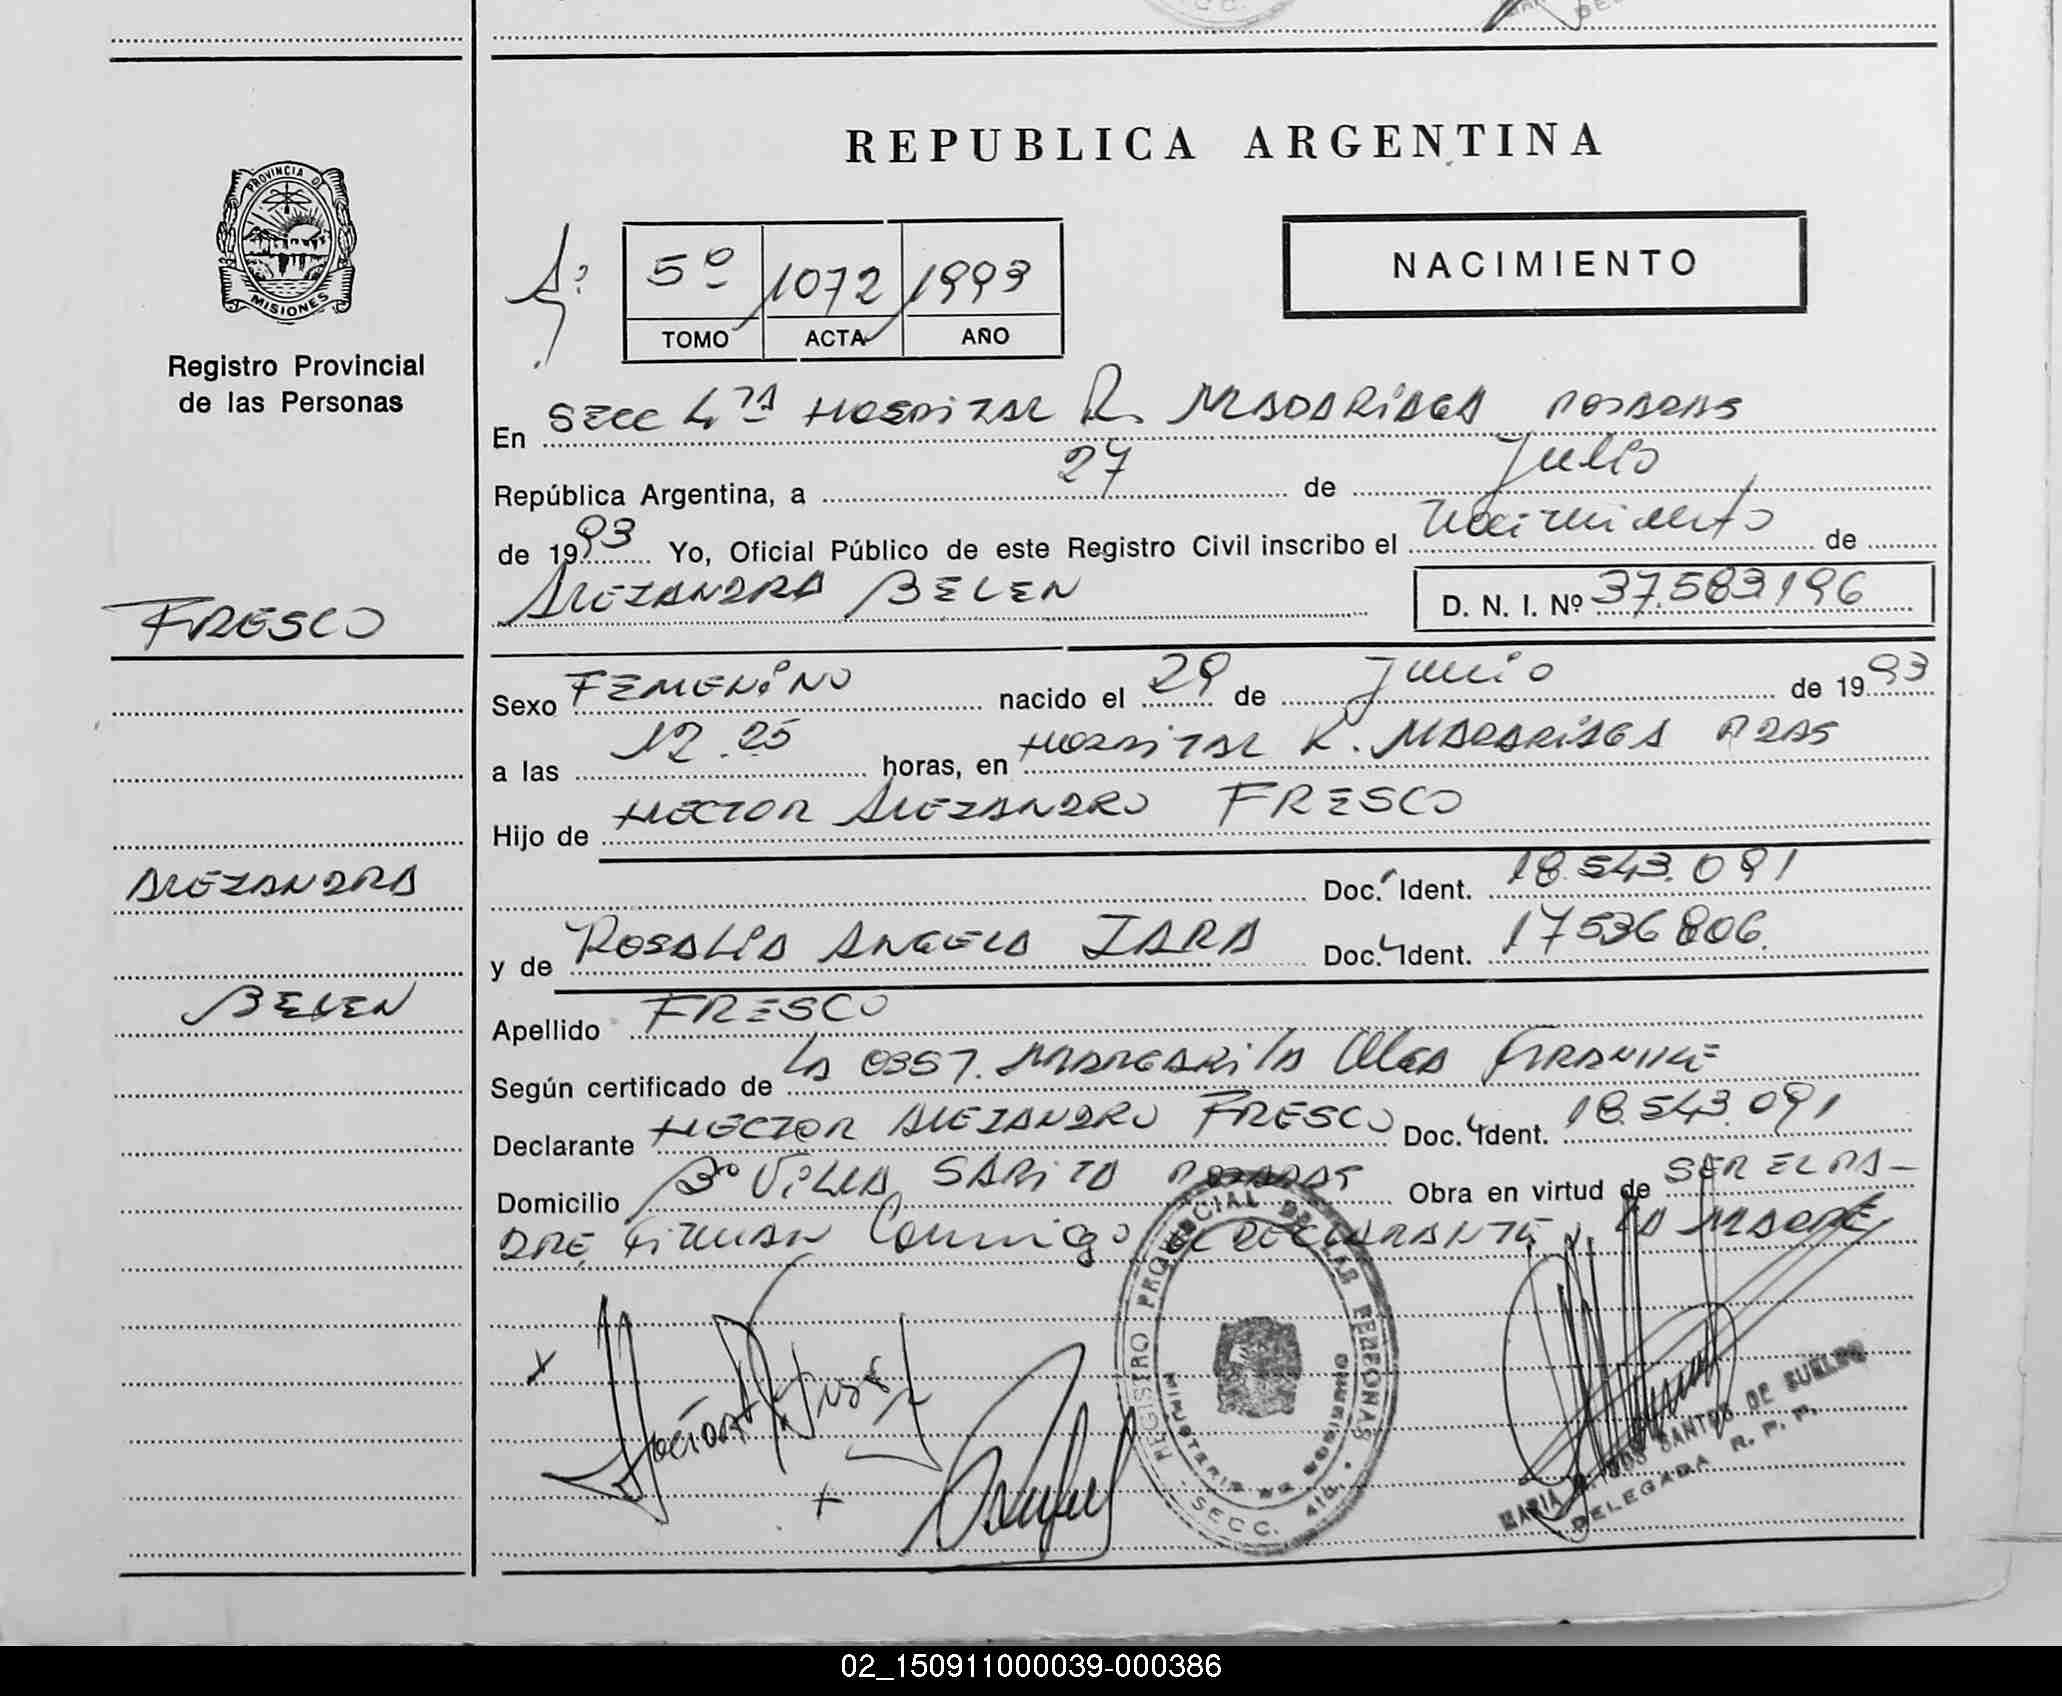 REPUBLICA ARGENTINA
PROVINCIA DE
MISIONES
Registro Provincial
de las Personas
5º 1072 1993
TOMO ACTA AÑO
NACIMIENTO
En SECC 4TA HOSPITAL R. MADARIAGA POSADAS
República Argentina, a 27 de Julio
de 1993 Yo, Oficial Público de este Registro Civil inscribo el nacimiento de
ALEJANDRA BELEN D. N. I. Nº 37.583.196
FRESCO
Sexo FEMENINO nacido el 29 de Junio de 1993
a las 12.25 horas, en HOSPITAL R. MADARIAGA PDAS
Hijo de HECTOR ALEJANDRO FRESCO
ALEJANDRA
Doc. Ident. 18.543.091
y de ROSALIA ANGELA JARA Doc. Ident. 17536806.
BELEN
Apellido FRESCO
Según certificado de LA OBST. MARGARITA Olga
Declarante HECTOR ALEJANDRO FRESCO Doc. Ident. 18.543.091
Domicilio Bº VILLA SARITA POSADAS Obra en virtud de SER EL PA-
DRE, FIRMAN Conmigo EL DECLARANTE Y LA MADRE
REGISTRO PROVINCIAL DE LAS PERSONAS
MINISTERIO DE GOBIERNO
SECC. 4ta.
MARIA SANTOS DE SUELDO
DELEGADA R. P. P.
02_150911000039-000386